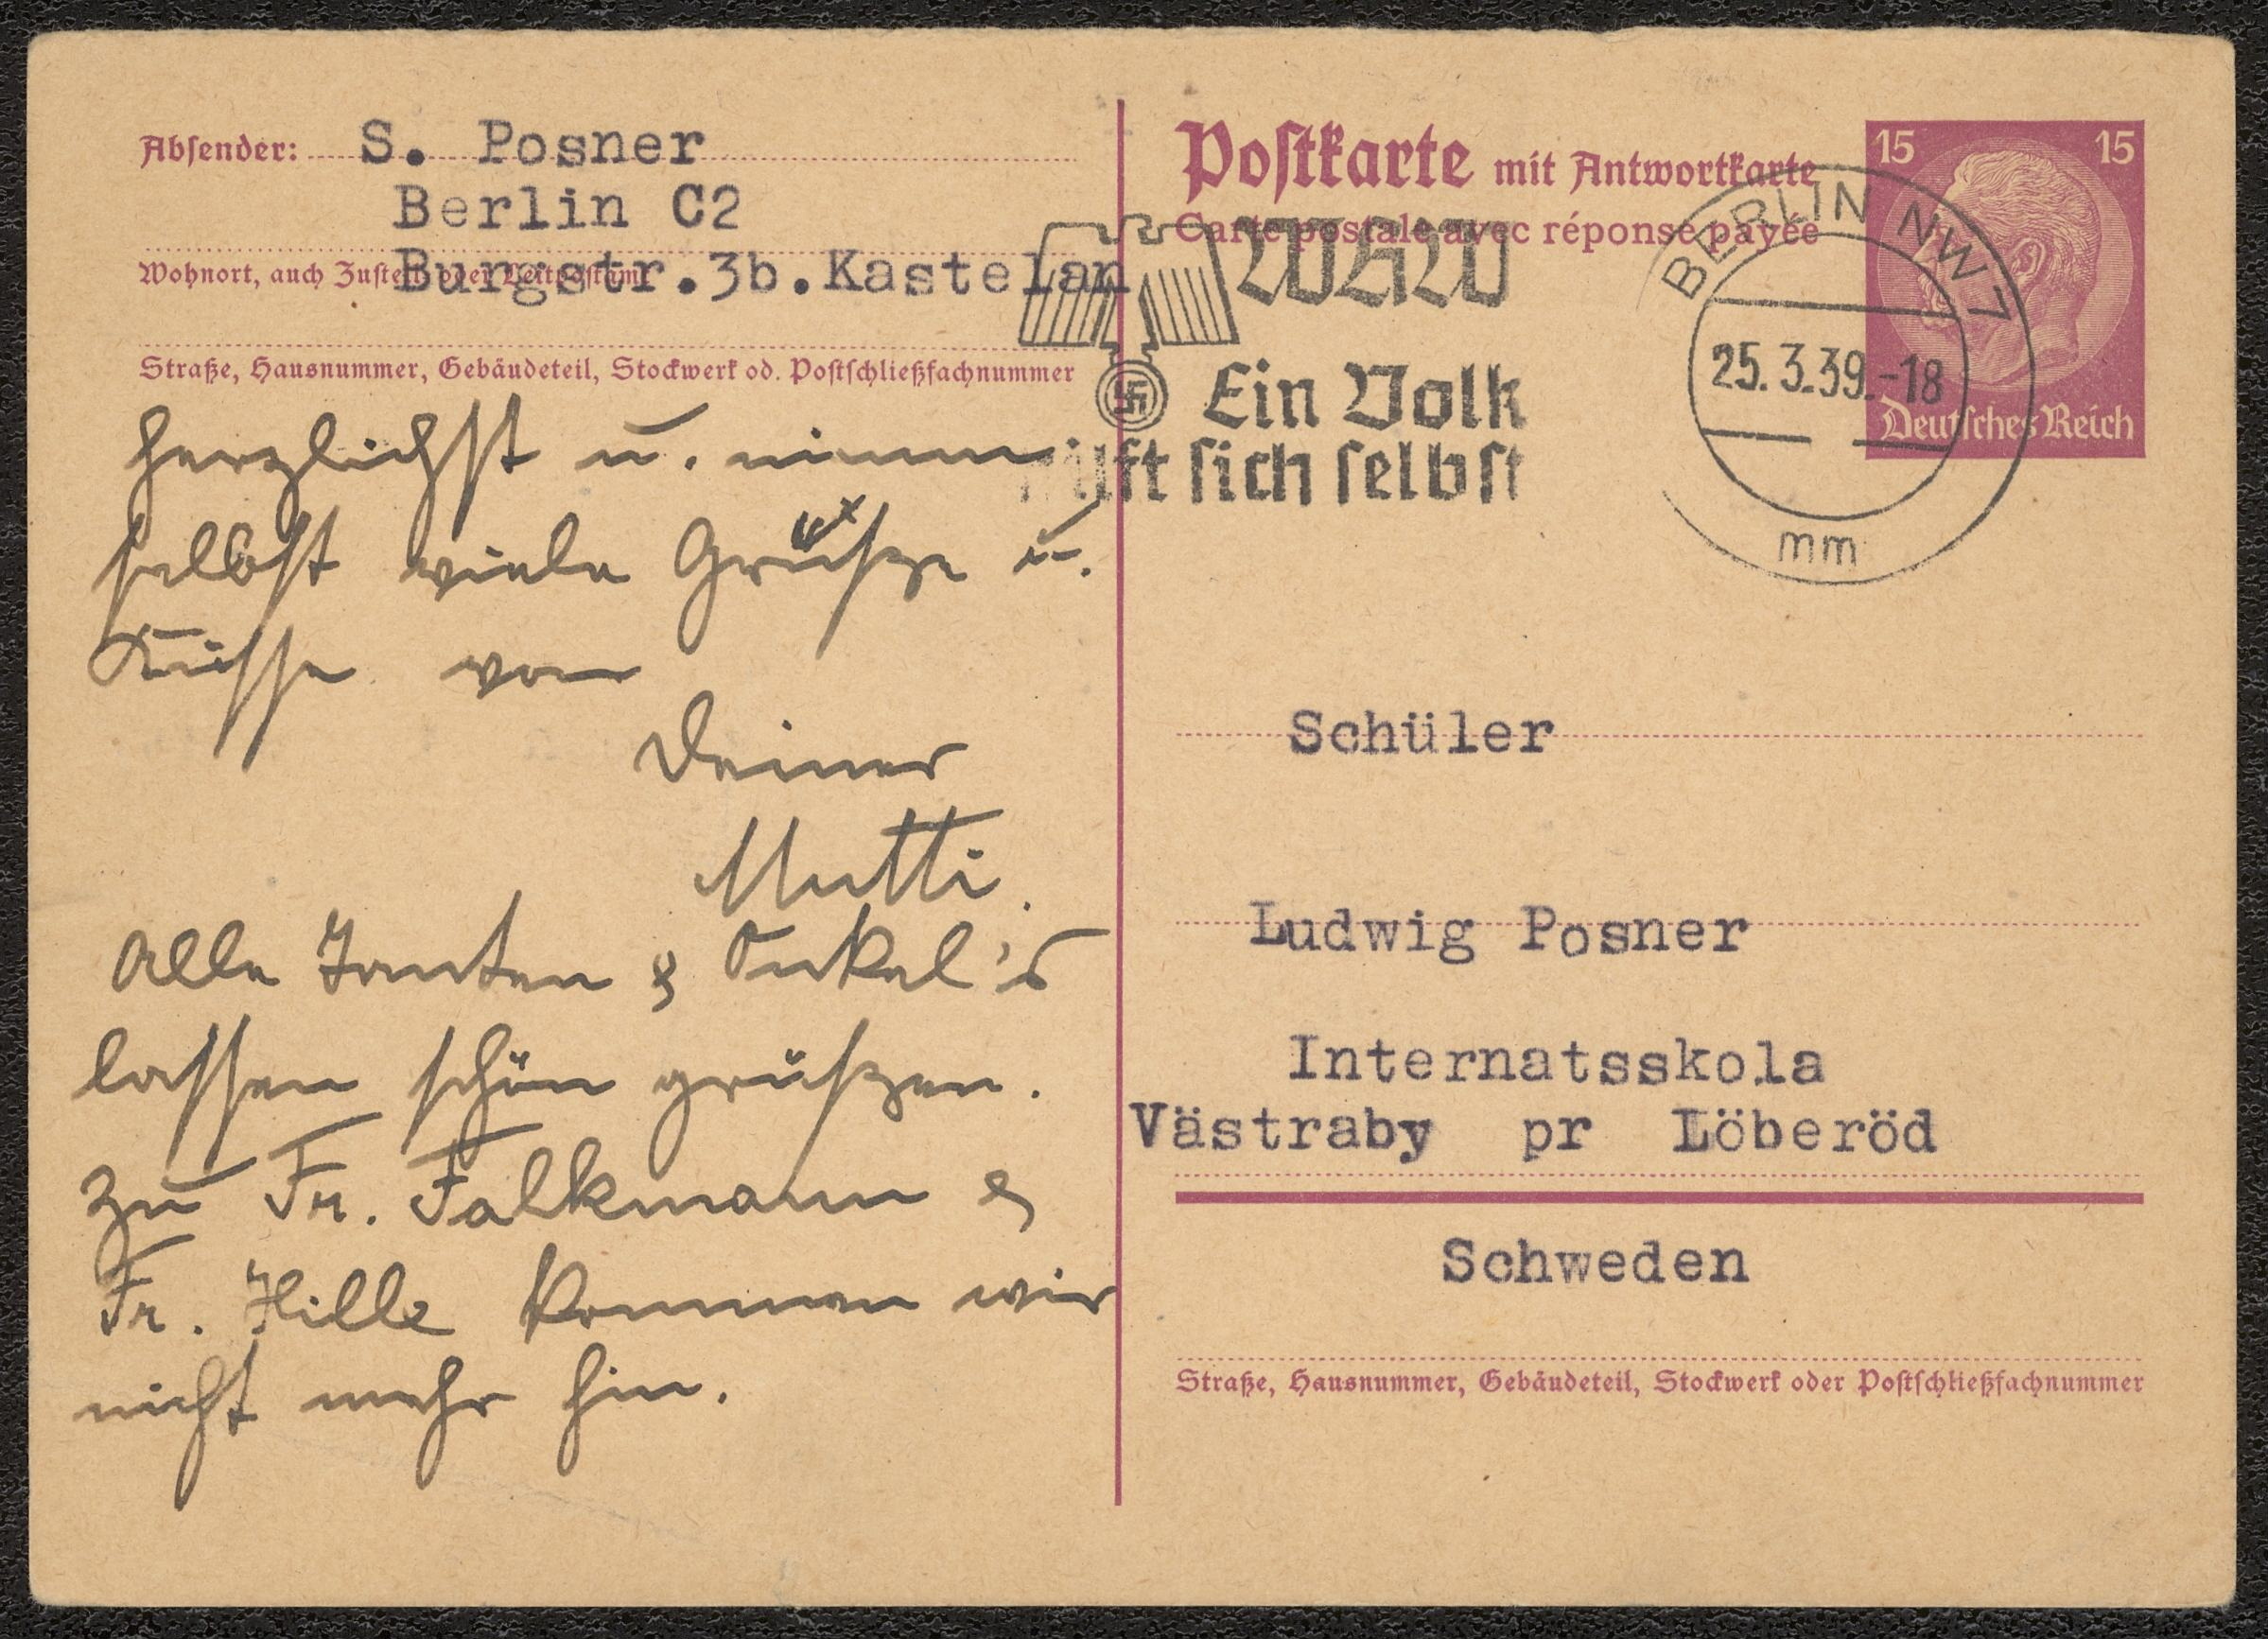 Absender: S. Posner
Berlin C2
Wohnort, auch Zustell- oder Leitpostamt
Burgstr.3b.Kastelan
Straße, Hausnummer, Gebäudeteil, Stockwerk od. Postschließfachnummer
herzlichst u. nimm
selbst viele Grüsze u.
Küsse von
Deiner
Mutti.
Alle Tanten & Onkel's
lassen schön grüszen.
Zu Fr. Falkmann &
Fr. Hille kommen wir
nicht mehr hin.
Postkarte mit Antwortkarte
Carte postale avec réponse payée
15 15
Deutsches Reich
WHW
Ein Volk
hilft sich selbst
BERLIN NW 7
25.3.39.-18
mm
Schüler
Ludwig Posner
Internatsskola
Västraby pr Löberöd
Schweden
Straße, Hausnummer, Gebäudeteil, Stockwerk oder Postschließfachnummer